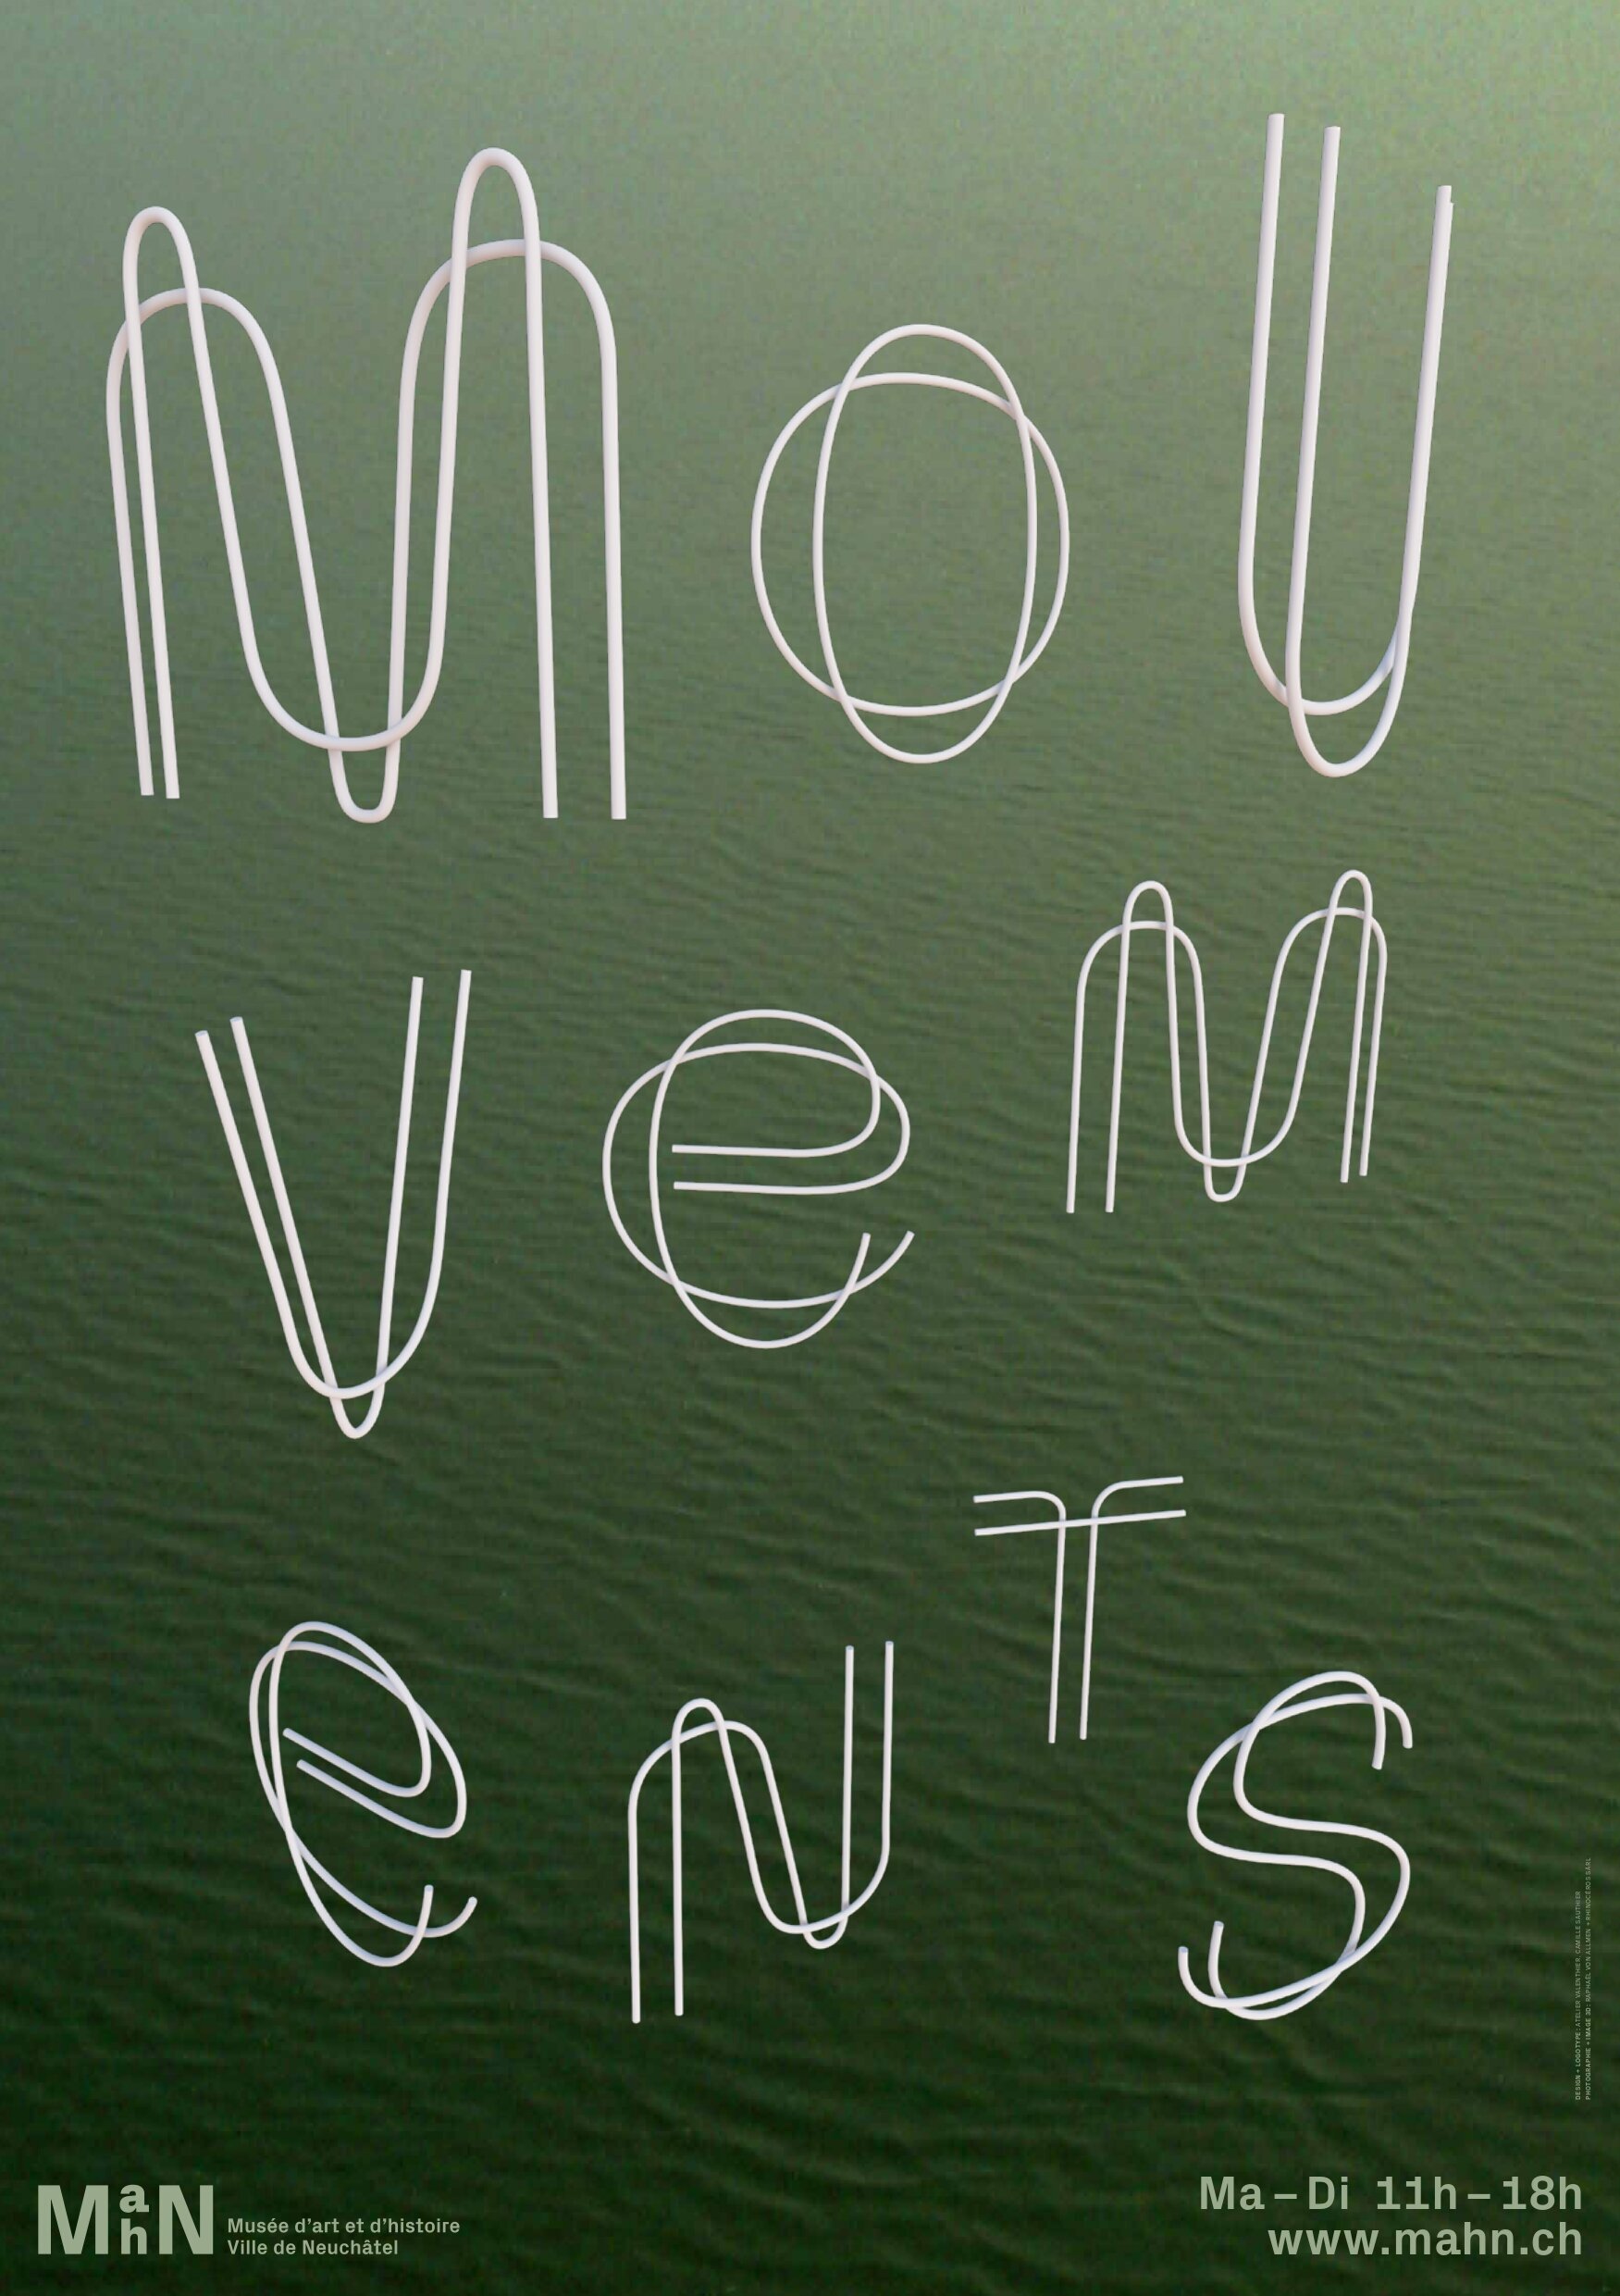 MoU
VeM
eNTS
DESIGN + LOGOTYPE : ATELIER VALENTHIER, CAMILLE SAUTHIER
PHOTOGRAPHIE + IMAGE 3D : RAPHAËL VON ALLMEN + RHINOCÉROS SÀRL
MahN
Musée d’art et d’histoire
Ville de Neuchâtel
Ma – Di 11h – 18h
www.mahn.ch